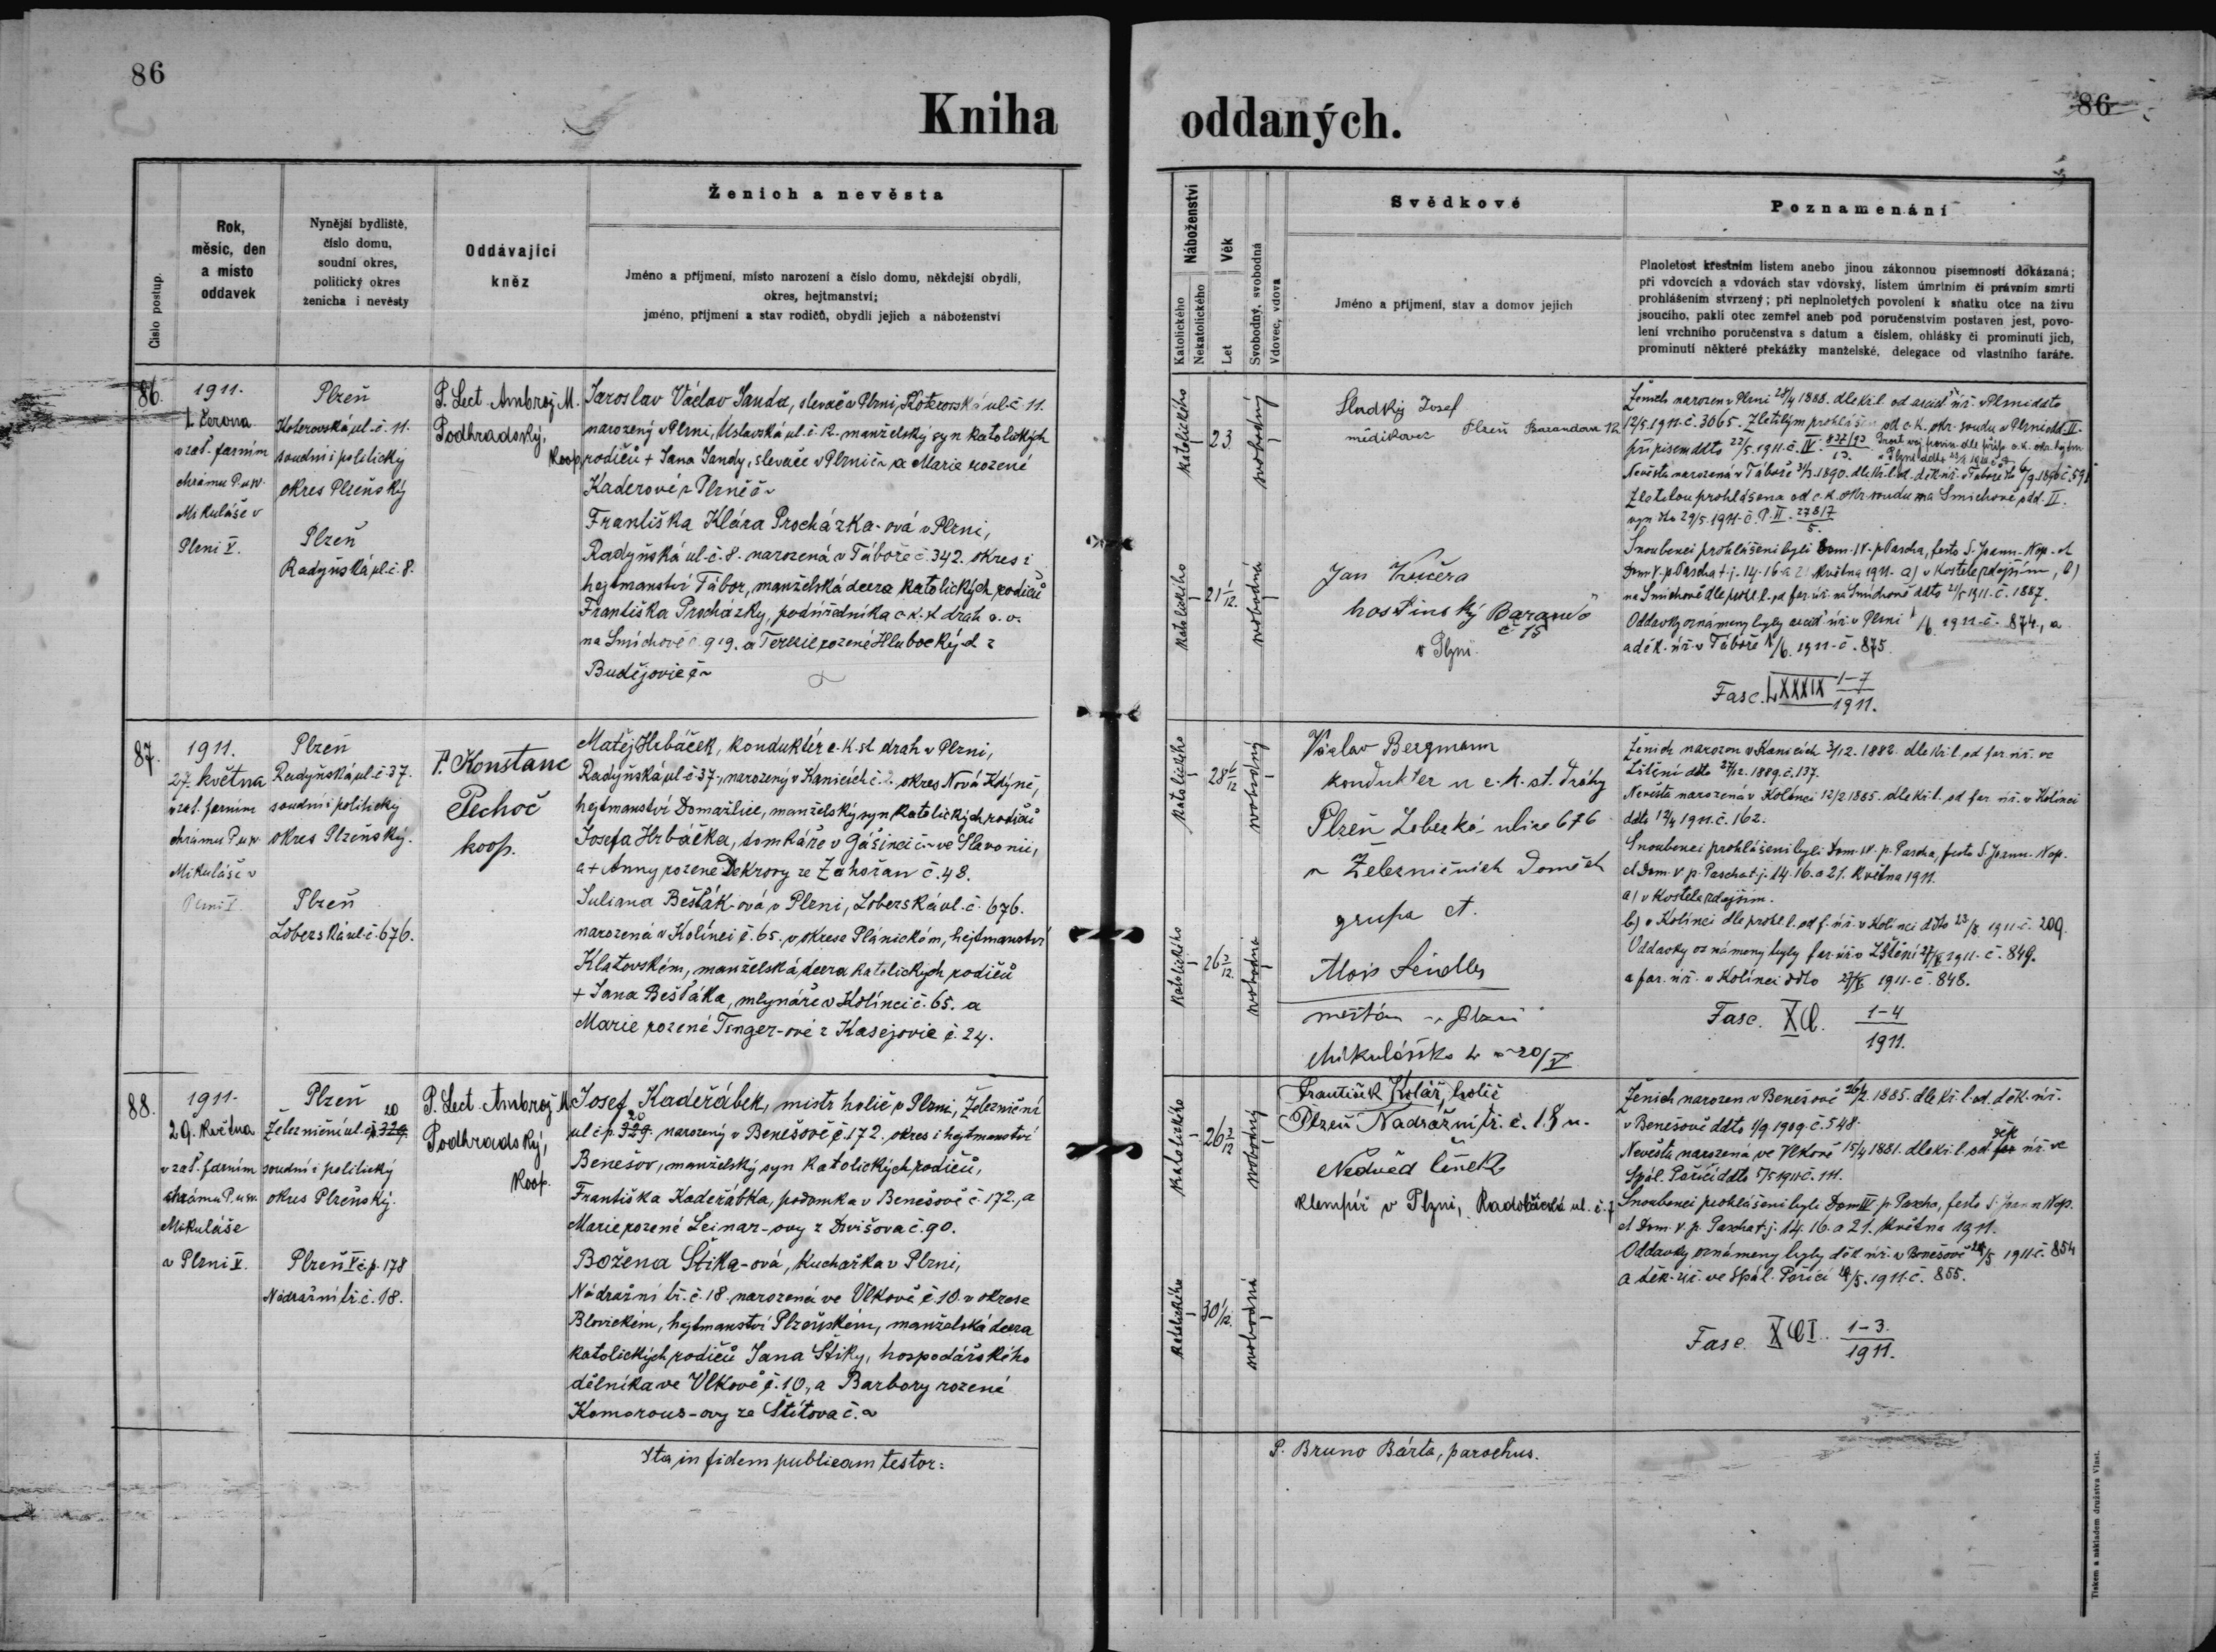 86
Kniha
oddaných.
86
Číslo postup.
Rok,
měsíc, den
a místo
oddavek
Nynější bydliště,
číslo domu,
soudní okres,
politický okres
ženicha i nevěsty
Oddávající
kněz
Ženich a nevěsta
Jméno a příjmení, místo narození a číslo domu, někdejší obydlí,
okres, hejtmanství;
jméno, příjmení a stav rodičů, obydlí jejich a náboženství
Náboženství
Katolického
Nekatolického
Věk
Let
Svobodný, svobodná
Vdovec, vdova
Svědkové
Jméno a příjmení, stav a domov jejich
Poznamenání
Plnoletost křestním listem anebo jinou zákonnou písemností dokázaná;
při vdovcích a vdovách stav vdovský, listem úmrtním či právním smrti
prohlášením stvrzený; při neplnoletých povolení k sňatku otce na živu
jsoucího, pakli otec zemřel aneb pod poručenstvím postaven jest, povo-
lení vrchního poručenstva s datum a číslem, ohlášky či prominutí jich,
prominutí některé překážky manželské, delegace od vlastního faráře.
86.
1911.
1. června
v zat. farním
chrámu P. u sv.
Mikuláše v
Plzni V.
Plzeň
Koterovská ul. č. 11.
soudní i politický
okres Plzeňský
Plzeň
Radyňská ul. č. 8.
P. Lect. Ambrož M.
Podhradský,
koop.
Jaroslav Václav Janda, slevač v Plzni, Koterovská ul. č. 11.
narozený v Plzni, Úslavská ul. č. 12. manželský syn katolických
rodičů + Jana Jandy, slevače v Plzni č. ~ a Marie rozené
Kaderové z Plzně č. ~
Františka Klára Procházka-ová v Plzni,
Radyňská ul. č. 8. narozená v Táboře č. 342. okres i
hejtmanství Tábor, manželská dcera katolických rodičů
Františka Procházky, podúředníka c. k. st. drah v. v.
na Smíchově č. 919. a Terezie rozené Hlubocký-d z
Budějovic č. ~
katolického
23
svobodný
katolického
21 1/12.
svobodná
Sladký Josef
mědikovec Plzeň Barandova 12
Jan Kučera
hostinský Barando
č 15
v Plzni.
Ženich narozen v Plzni 28/4 1888. dle kř. l. od arcid. úř. v Plzni ddto
12/5. 1911. č. 3065. Zletilým prohlášen od c. k. okr. soudu v Plzni odd. II.
Nevěsta narozená v Táboře 31/3. 1890. dle kř. l. od. děk. úř. v Táboře
Zletilou prohlášena od c. k. okr. soudu na Smíchově odd. II.
Snoubenci prohlášeni byli Dom. IV. p. Pascha, festo S. Joann. Nep. et
Dom. V. p. Pascha t. j. 14. 16. a 21. května 1911. a) v kostele zdejším, b)
na Smíchově dle prohl. l. od far. úř. na Smíchově ddto 21/5 1911. č. 1887.
Oddavky oznámeny byly arcid. úř. v Plzni 1/6. 1911. č. 874., a
a děk. úř. v Táboře 1/6. 1911. č. 875.
Fasc. LXXXIX 1-7
1911.
87.
1911.
27. května
v zat. farním
chrámu P. u sv.
Mikuláše v
Plzni V.
Plzeň
Radyňská ul. č. 37.
soudní i politický
okres Plzeňský.
Plzeň
Lobezská ul. č. 676.
P. Konstanc
Pechoč
koop.
Matěj Hrbáček, konduktér c. k. st. drah v Plzni,
Radyňská ul. č. 37., narozený v Kanicích č. 2. okres Nová Kdyně,
hejtmanství Domažlice, manželský syn katolických rodičů
Josefa Hrbáčka, domkáře v Gašinci č. ~ ve Slavonii,
a + Anny rozené Dekrovy ze Zahořan č. 48.
Juliana Bešták-ová v Plzni, Lobezská ul. č. 676.
narozená v Kolinci č. 65. v okrese Plánickém, hejtmanství
Klatovském, manželská dcera katolických rodičů
+ Jana Beštáka, mlynáře v Kolinci č. 65. a
Marie rozené Tenger-ové z Kasejovic č. 24.
katolického
28 6/12
svobodný
katolického
26 3/12.
svobodná
Václav Bergmann
kondukter u c. k. st. dráhy
Plzeň Lobezká ulice 676
v Železničních Domech
grupa A.
Alois Seidler
měšťan v Plzni
Mikulášská tř.
Ženich narozen v Kanicích 3/12. 1882. dle kř. l. od far. úř. ve
Zštění ddto 27/12. 1889. č. 137.
Nevěsta narozená v Kolinci 12/2 1885. dle kř. l. od far. úř. v Kolinci
ddto 12/4 1911. č. 162.
Snoubenci prohlášeni byli Dom. IV. p. Pascha, festo S. Joann. Nep.
et Dom. V p. Pascha t. j. 14. 16. a 21. května 1911.
a) v kostele zdejším.
b) v Kolinci dle prohl. l. od f. úř. v Kolinci ddto 23/5 1911. č. 209.
Oddavky oznámeny byly far. úř. v Zštění 27/5 1911. č. 849.
a far. úř. v Kolinci ddto 27/5 1911. č. 848.
Fasc. XC. 1-4
1911.
88.
1911.
29. května
v zat. farním
chrámu P. u sv.
Mikuláše
v Plzni V.
Plzeň
Železniční ul. čp. 329. 20
soudní i politický
okres Plzeňský.
Plzeň V č. p. 178
Nádražní tř. č. 18.
P. Lect. Ambrož M.
Podhradský,
koop.
Josef Kadeřábek, mistr holič v Plzni, Železniční
ul. č. p. 329. 20 narozený v Benešově č. 172. okres i hejtmanství
Benešov, manželský syn katolických rodičů,
Františka Kadeřábka, podomka v Benešově č. 172., a
Marie rozené Leinar-ovy z Divišova č. 90.
Božena Štika-ová, kuchařka v Plzni,
Nádražní tř. č. 18. narozená ve Vlkově č. 10. v okrese
Blovickém, hejtmanství Plzeňském, manželská dcera
katolických rodičů Jana Štiky, hospodářského
dělníka ve Vlkově č. 10., a Barbory rozené
Komorous-ovy ze Štítova č. ~
katolického
26 3/12
svobodný
katolického
30 1/12.
svobodná
František Kolář, holič
Plzeň Nadražní tř. č. 18 n.
Nedvěd Čeněk
klempíř v Plzni, Radobčická ul. č. 7
Ženich narozen v Benešově 26/2. 1885. dle kř. l. od. děk. úř.
v Benešově ddto 1/9. 1909. č. 548.
Nevěsta narozená ve Vlkově 15/4 1881. dle kř. l. od far děk úř. ve
Spál. Poříčí ddto 5/5 1911. č. 111.
Snoubenci prohlášeni byli Dom IV p. Pascha, festo S. Joann Nep.
et Dom. V. p. Pascha t. j. 14. 16. a 21. května 1911.
Oddavky oznámeny byly děk. úř. v Benešově 29/5 1911. č. 854
a děk. úř. ve Spál. Poříčí 29/5. 1911. č. 855.
Fasc. XCI. 1-3.
1911.
Ita in fidem publicam testor:
P. Bruno Bárta, parochus.
Tiskem a nákladem družstva Vlast.